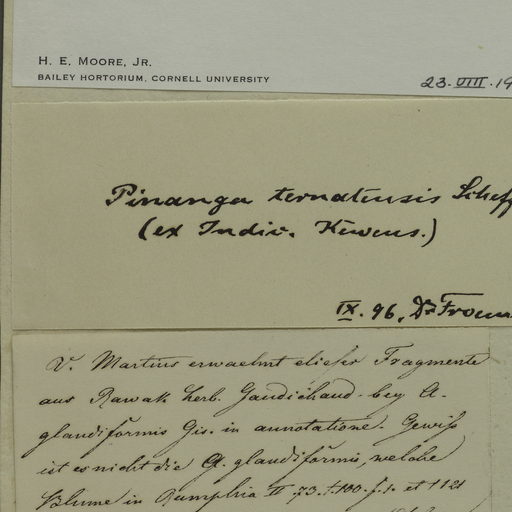 H. E. MOORE, JR.
BAILEY HORTORIUM, CORNELL UNIVERSITY
23. VIII. 19
Pinanga ternatensis Scheff
(ex Indic. Kewens.)
IX. 96, Dr
V. Martius erwaehnt dieser Fragmente
aus Rawak herb. Gaudichaud. bey A.
glandiformis Gis. in annotatione. Gewiß
ist es nicht die A. glandiformis, welche
Blume in Rumphia II 73. t. 100. f. 1. et 112